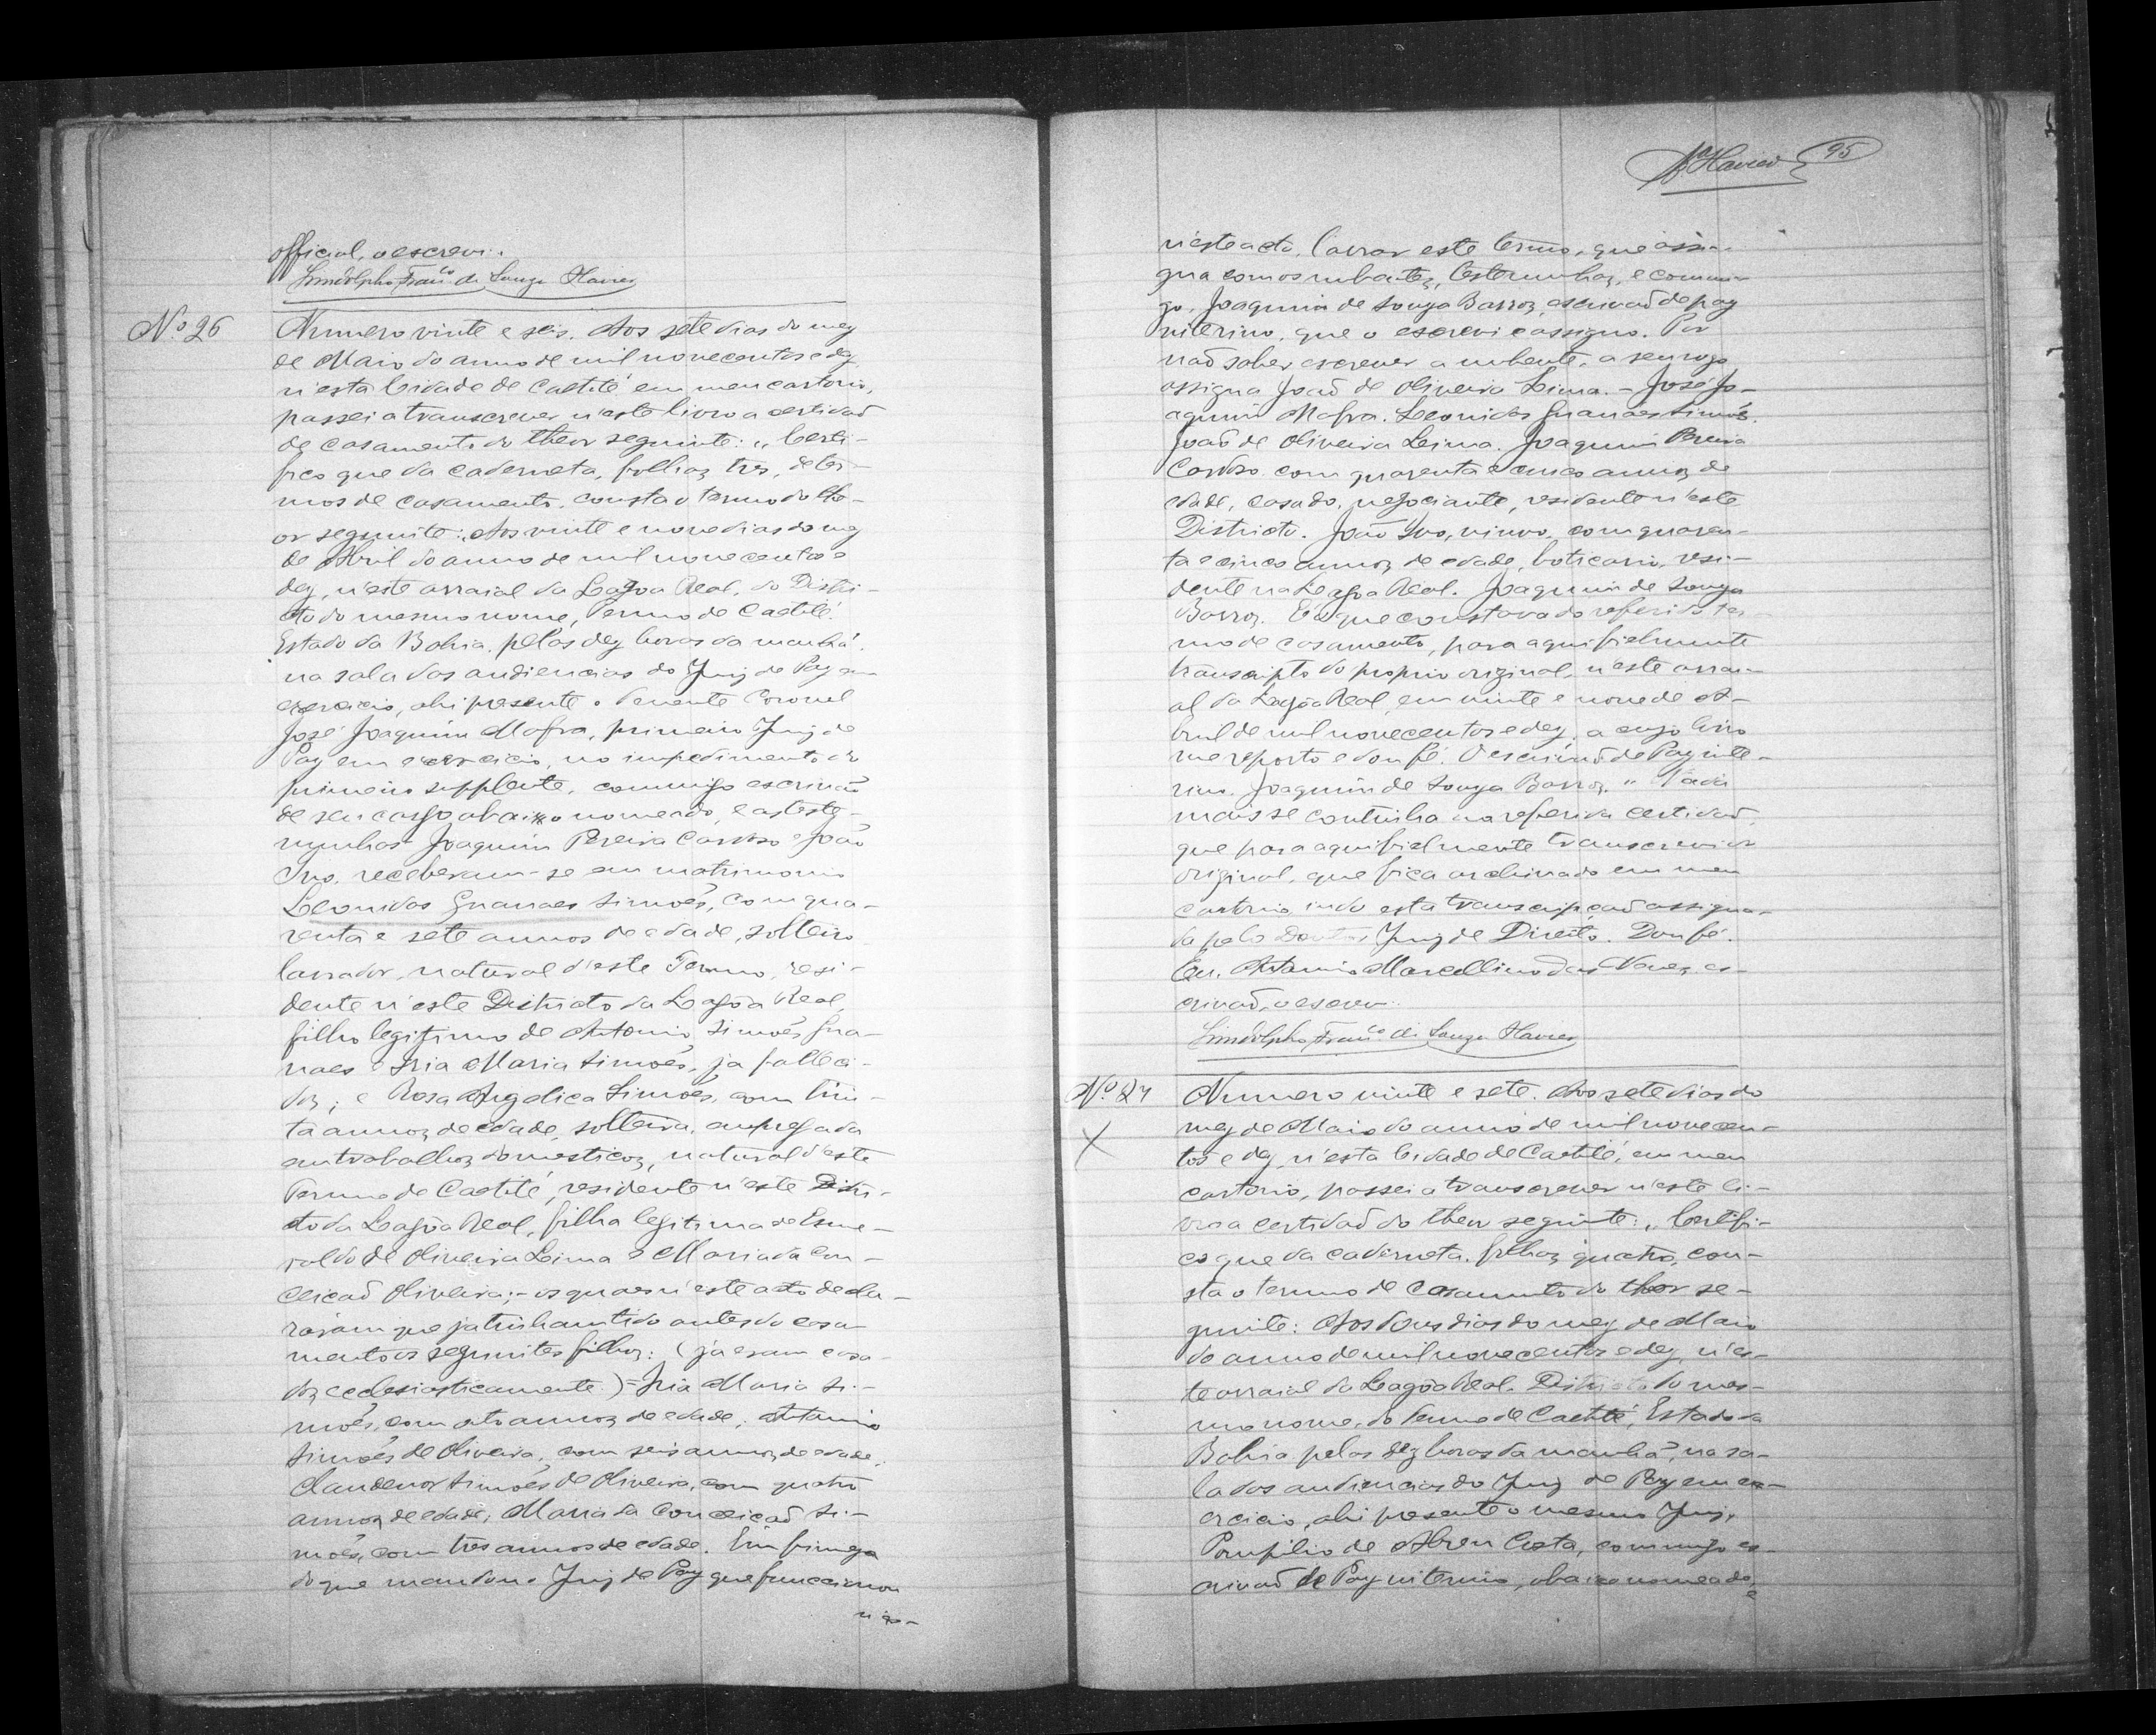 official, o escrevi.
Lindolpho Franco de Souza
No. 26
Numero vinte e seis. Aos sete dias do mez
de Maio do anno de mil novecentos e dez,
n'esta Cidade de Caetité em meu cartorio,
passei a transcrever n'este livro a certidaõ
de casamento do theor seguinte: "Certi-
fico que da caderneta, folhaz tres, de ter-
mos de casamento, consta o termo do the-
or seguinte: Aos vinte e nove dias do mez
de Abril do anno de mil novecentos e
dez, n'este arraial da Lagôa Real, do Distri-
cto do mesmo nome, Termo de Caetité.
Estado da Bahia, pelas dez horas da manhã,
na sala das audiencias do Juiz de Paz em
exercicio, ahi presente o Tenente Coronel
José Joaquim Mafra, primeiro Juiz de
Paz em exercicio, no impedimento do
primeiro supplente, commigo escrivaõ
de seu cargo abaixo nomeado, e as teste-
munhas Joaquim Pereira Cardoso e João
Ivo, receberam-se em matrimonio
Leonidas Guanaes Simões, com qua-
renta e sete annos de edade, solteiro
lavrador, natural d'este Termo, resi-
dente n'este Districto da Lagôa Real,
filho legitimo de Antonio Simões Gua-
naes e Iria Maria Simões, ja falleci-
doz; e Rosa Angelica Simões, com trin-
ta annoz de edade, solteira, empregada
em trabalhoz domesticoz, natural d'este
Termo de Caetité, residente n'este Distri-
cto da Lagôa Real, filha legitima de Esme-
raldo de Oliveira Lima e Maria da Con-
ceicaõ Oliveira; - os quaes n'este acto decla-
raram que ja tinham tido antes do casa-
mento os seguintes filhoz: (já eram casa-
doz ecclesiasticamente) - Iria Maria Si-
mões, com oito annoz de edade; Antonio
Simões de Oliveira, com seis annoz de edade;
Claudenor Simões de Oliveira, com quatro
annoz de edade; Maria da Conceicaõ Si-
mões, com tres annos de edade. Em firmeza
do que mandou o Juiz de Paz que funccionou
n'es-
95
n'este acto, lavrar este termo, que assi-
gna com os nubentez, testemunhaz, e commi-
go, Joaquim de Souza Barroz, escrivaõ de paz
interino, que o escrevi e assigno. Por
naõ saber escrever a nubente, a seu rogo
assigna Joaõ de Oliveira Lima. - José Jo-
aquim Mafra. Leonidas Guanaes Simões.
Joaõ de Oliveira Leima. Joaquim Pereira
Cardoso com quarenta e cinco annoz de
edade, casado, negociante, residente n'este
Districto. João Ivo, viuvo, com quaren-
ta e cinco annoz de edade, boticario, resi-
dente na Lagôa Real. Joaquim de Souza
Barroz. É o que constava do referido ter-
mo de casamento, para aqui fielmente
transcripto do proprio original, n'este arrai-
al da Lagôa Real, em vinte e nove de A-
bril de mil novecentos e dez, a cujo livro
me reporto e dou fé. O escrivaõ de Paz inte-
rino. Joaquim de Souza Barroz." Nada
mais se continha na referida certidaõ,
que para aqui fielmente transcrevi do
original, que fica archivado em meu
cartorio, indo esta transcripçaõ assigna-
da pelo Doutor Juiz de Direito. Dou fé.
Eu, Antonio Marcellino das Neves, es-
crivaõ, o escrevi.
Lindolpho Franco de Souza
No. 27
Numero vinte e sete. Aos sete dias do
X
mez de Maio do anno de mil novecen-
tos e dez, n'esta Cidade de Caetité, em meu
cartorio, passei a transcrever n'este li-
vro a certidaõ do theor seguinte: "Certifi-
co que da caderneta, folhaz quatro, con-
sta o termo de casamento do theor se-
guinte: Aos dous dias do mez de Maio
do anno de mil novecentos e dez, n'es-
te arraial da Lagôa Real, Districto do mes-
mo nome, do Termo de Caetité, Estado da
Bahia pelas dez horas da manhã, na sa-
la das audiencias do Juiz de Paz em ex-
ercicio, ahi presente o mesmo Juiz,
Pompilio de Abreu Costa, commigo es-
crivaõ de Paz interino, abaixo nomeado,
e